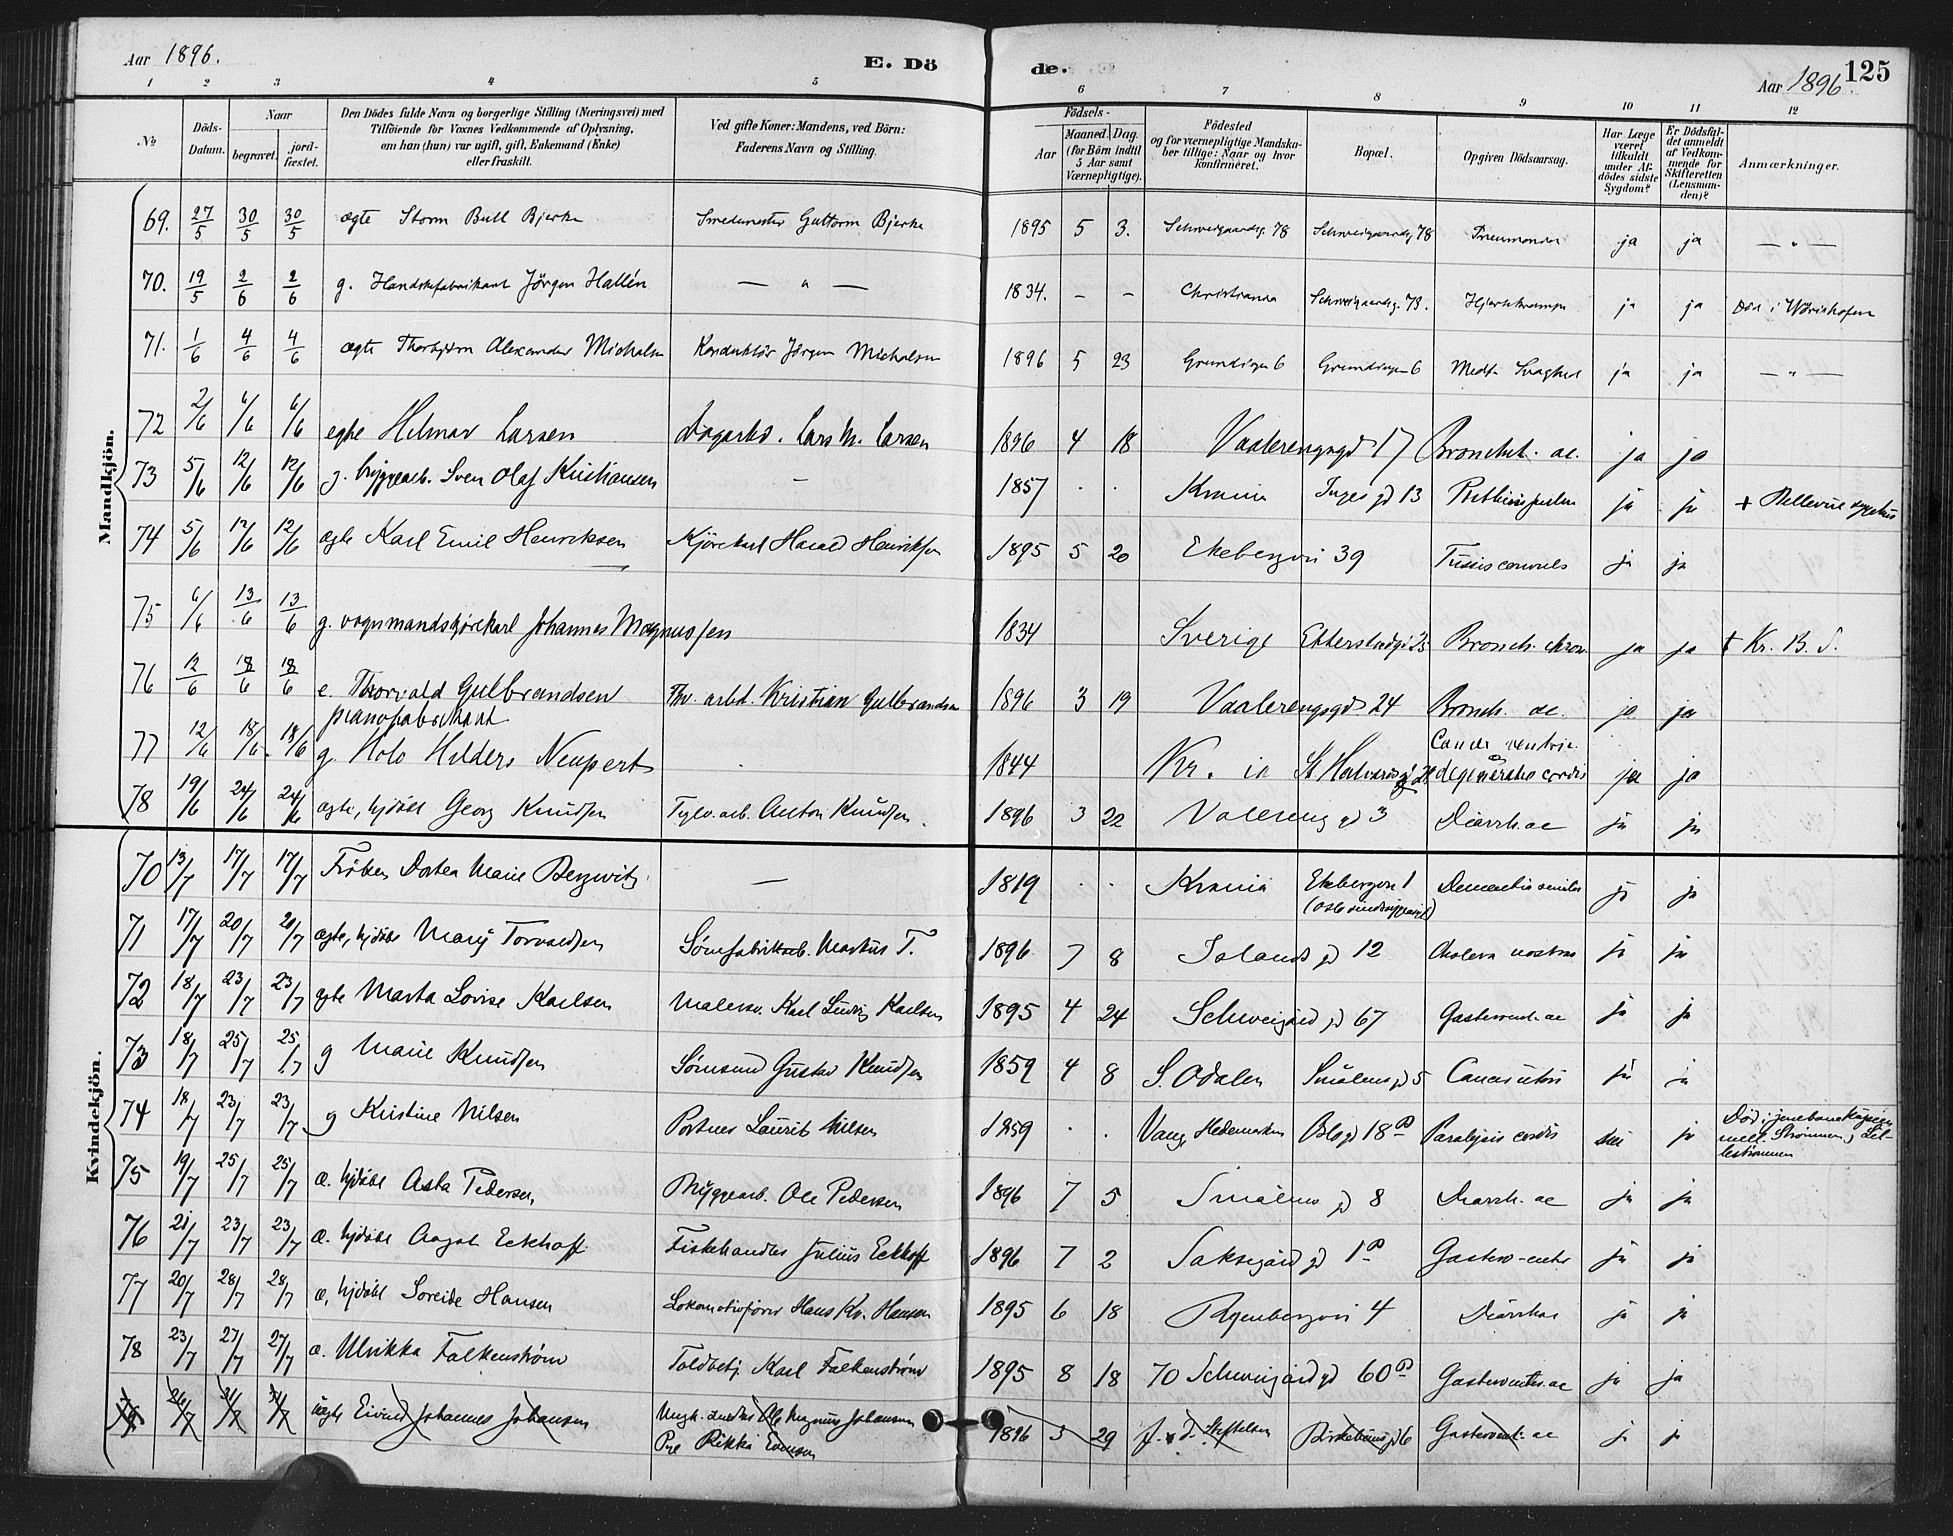 Aar 1896.
E. Dö
de.
125
Aar 1896.
1 2 3 4 5 6 7 8 9 10 11 12
Nr
Döds-Datum.
Naar
begravet.
jord-fæstet.
Den Dödes fulde Navn og borgerlige Stilling (Næringsvei) med
Tilföiende for Voxnes Vedkommende af Oplysning,
om han (hun) var ugift, gift, Enkemand (Enke)
eller fraskilt.
Ved gifte Koner: Mandens, ved Börn:
Faderens Navn og Stilling.
Födsels-
Aar
Maaned. Dag.
(for Börn indtil
5 Aar samt
Værnepligtige).
Födested
og for værnepligtige Mandska-
ber tillige: Naar og hvor
konfirmeret.
Bopæl.
Opgiven Dödsaarsag.
Har Læge
været
tilkaldt
under Af-
dödes sidste
Sygdom?
Er Dödsfal-
det anmeldt
af Vedkom-
mende for
Skifteretten
(Lensman-
den)?
Anmærkninger.
Mandkjön.
69. 27/5 30/5 30/5 ægte Storm Bull Bjerke Smedemester Guttorm Bjerke 1895 5 3. Schweigaardsg. 78 Schweigaardsg. 78 Pneumonia ja ja — " —
70. 19/5 2/6 2/6 g. Handskefabrikant Jörgen Hallén — " — 1834. – – Christiania Schweigaardsg. 73. Hjertekrampe ja ja Död i Wörishofen
71. 1/6 4/6 4/6 ægte Thorbjörn Alexander Michalsen Konduktör Jörgen Michalsen 1896 5 23 Grundingen 6 Grundingen 6 Medf. Svaghed ja ja — " —
72 2/6 6/6 6/6 egte Hilmar Larsen Dagarbd. Lars M. Larsen 1896 4 18 Vaalerengsgd 17 Bronchit. ac. ja ja
73 5/6 12/6 12/6 g. bryggearb. Sven Olaf Kristiansen – 1857 . . Krania Inges gd 13 ja ja + Bellevue sygehus
74 5/6 12/6 12/6 ægte Karl Emil Henriksen Kjörekarl Harald Henriksen 1895 5 20 Ekebergvei 39 Tussis convuls ja ja
75 6/6 13/6 13/6 g. vognmandskjörekarl Johannes Magnussen 1834 Sverige Etterstadg. 23 Bronch. chron. ja ja † Kr. B. S.
76 12/6 18/6 18/6 e. Thorvald Gulbrandsen Thv. arbd. Kristian Gulbrandsen 1896 3 19 Vaalerengsgd 24 Bronch. ac. ja ja
pianofabrikant
77 12/6 18/6 18/6 g. Holo Hilders Neupert . 1844 Kr. ia St Halvards g Cancer ventric. degeneratio cordis ja ja
78 19/6 24/6 24/6 ægte, hjdöbt Georg Knudsen Teglv. arb. Anton Knudsen. 1896 3 22 Valereng gd 3 Diarrh. ac ja ja
Kvindekjön.
70 13/7 17/7 17/7 Fröken Dortea Marie Bergwitz — 1819 . . Krania Ekebergvei 1 Dementia senilis ja ja
71 17/7 20/7 20/7 ægte, hjdöbt Mary Torvaldsen Sömfabrikarb. Markus T. 1896 7 8 Islands gd 12 Cholera nostras ja ja
72 18/7 23/7 23/7 egte Marta Lovise Karlsen Malersv. Karl Ludvig Karlsen 1895 4 24 Schweigård gd 67 Gasteroent. ac ja ja
73 18/7 25/7 25/7 g Marie Knudsen Sömand Gustav Knudsen 1859 4 8 S. Odalen Smålens gd 5 Cancer uteri ja ja
74 18/7 23/7 23/7 g Kristine Nilsen Portner Laurits Nilsen 1859 . . Vang Hedemarken Oslo gd 18 B Paralysis cordis nei ja Död i jernbanekupeen
mell. Strömmen & Lil-
leströmmen
75 19/7 25/7 25/7 æ. hjdöbt Asta Pedersen Bryggearb. Ole Pedersen 1896 7 5 Smålens gd 8 Diarrh. ac ja ja
76 21/7 23/7 23/7 æ. hjdöbt Aagot Eckhoff Fiskehandler Julius Eckhoff 1896 7 2 Saksegård gd 1 B Gastero-enter ja ja
77 20/7 28/7 28/7 æ, hjdöbt Soreide Hansen Lokomotivförer Hans Kr. Hansen 1895 6 18 Ryenbergvei 4 Diárrhae ja ja
78 23/7 27/7 27/7 æ. Ulrikka Falkenström Toldbetj. Karl Falkenström 1895 8 18 70 Schweigård gd 60 B Gasteroenter. ac ja ja
26/7 31/7 31/7 uægte Eivind Johannes Johansen Ungk. snedker Ole Magnus Johansen 1896 3 29 F. v. d. Stiftelsen Birkebeiner gd 6 Gasteroent. ac j j
Pge Rikka Evensen